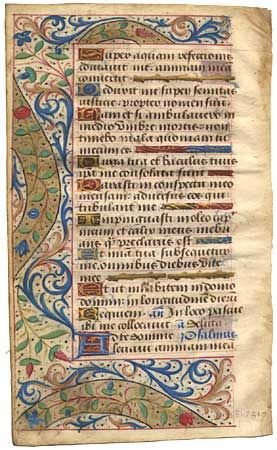 Super aquam refectionis
educavit me animam mea
convertit
Deduxit me super semitas
iusticie propter nomen suu
Nam et si ambulavero in
medio umbre mortis non
timebo mala quoniam tu
mecum es
Virga tua et baculus tuus
ipa me consolata sunt
Parasti in conspectu meo
mensam adversus eos qui
tribulant me
Impinguasti in oleo cap
meum et calix meus inebri
ans q preclarus est
Et mia tua subsequetur
me omnibus diebus vite
mee
Et ut inhabitem in domo
domini in longitudine dieru
Requiem an In loco pascue
ibi me collocavit a Delicta
Ad te domine Psalmus
levavi animam mea